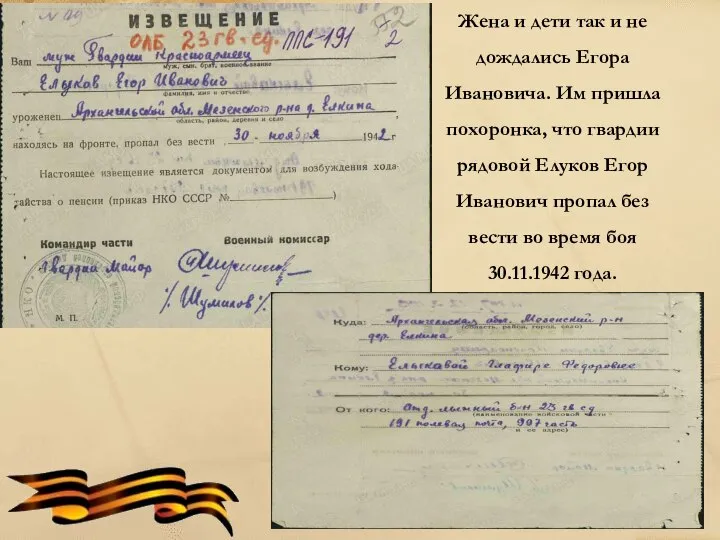 N 119
ИЗВЕЩЕНИЕ
ОЛБ 23 гв. сд. ППС-191 2
Ваш муж Гвардии Красноармеец
муж, сын, брат, военное звание
Елуков Егор Иванович
фамилия, имя и отчество
уроженец Архангельской обл. Мезенского р-на д. Елкина,
область, район, деревня и село
находясь на фронте, пропал без вести 30 ноября 1942 г
Настоящее извещение является документом для возбуждения хода-
тайства о пенсии (приказ НКО СССР №)
Командир части Военный комиссар
Гвардии Майор
/Шумилов/
М. П.
Жена и дети так и не
дождались Егора
Ивановича. Им пришла
похоронка, что гвардии
рядовой Елуков Егор
Иванович пропал без
вести во время боя
30.11.1942 года.
Куда: Архангельская обл. Мезенский р-н
(область, район, город, село)
дер. Елкина.
Кому: Елуковой Глафире Федоровне
От кого: Отд. лыжный б-н 23 гв сд
(наименование войсковой части
191 полевая почта, 997 часть
и ее адрес)